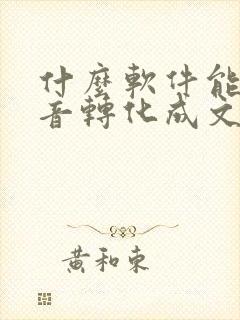 什麼軟件能
音轉化成文
黃和東